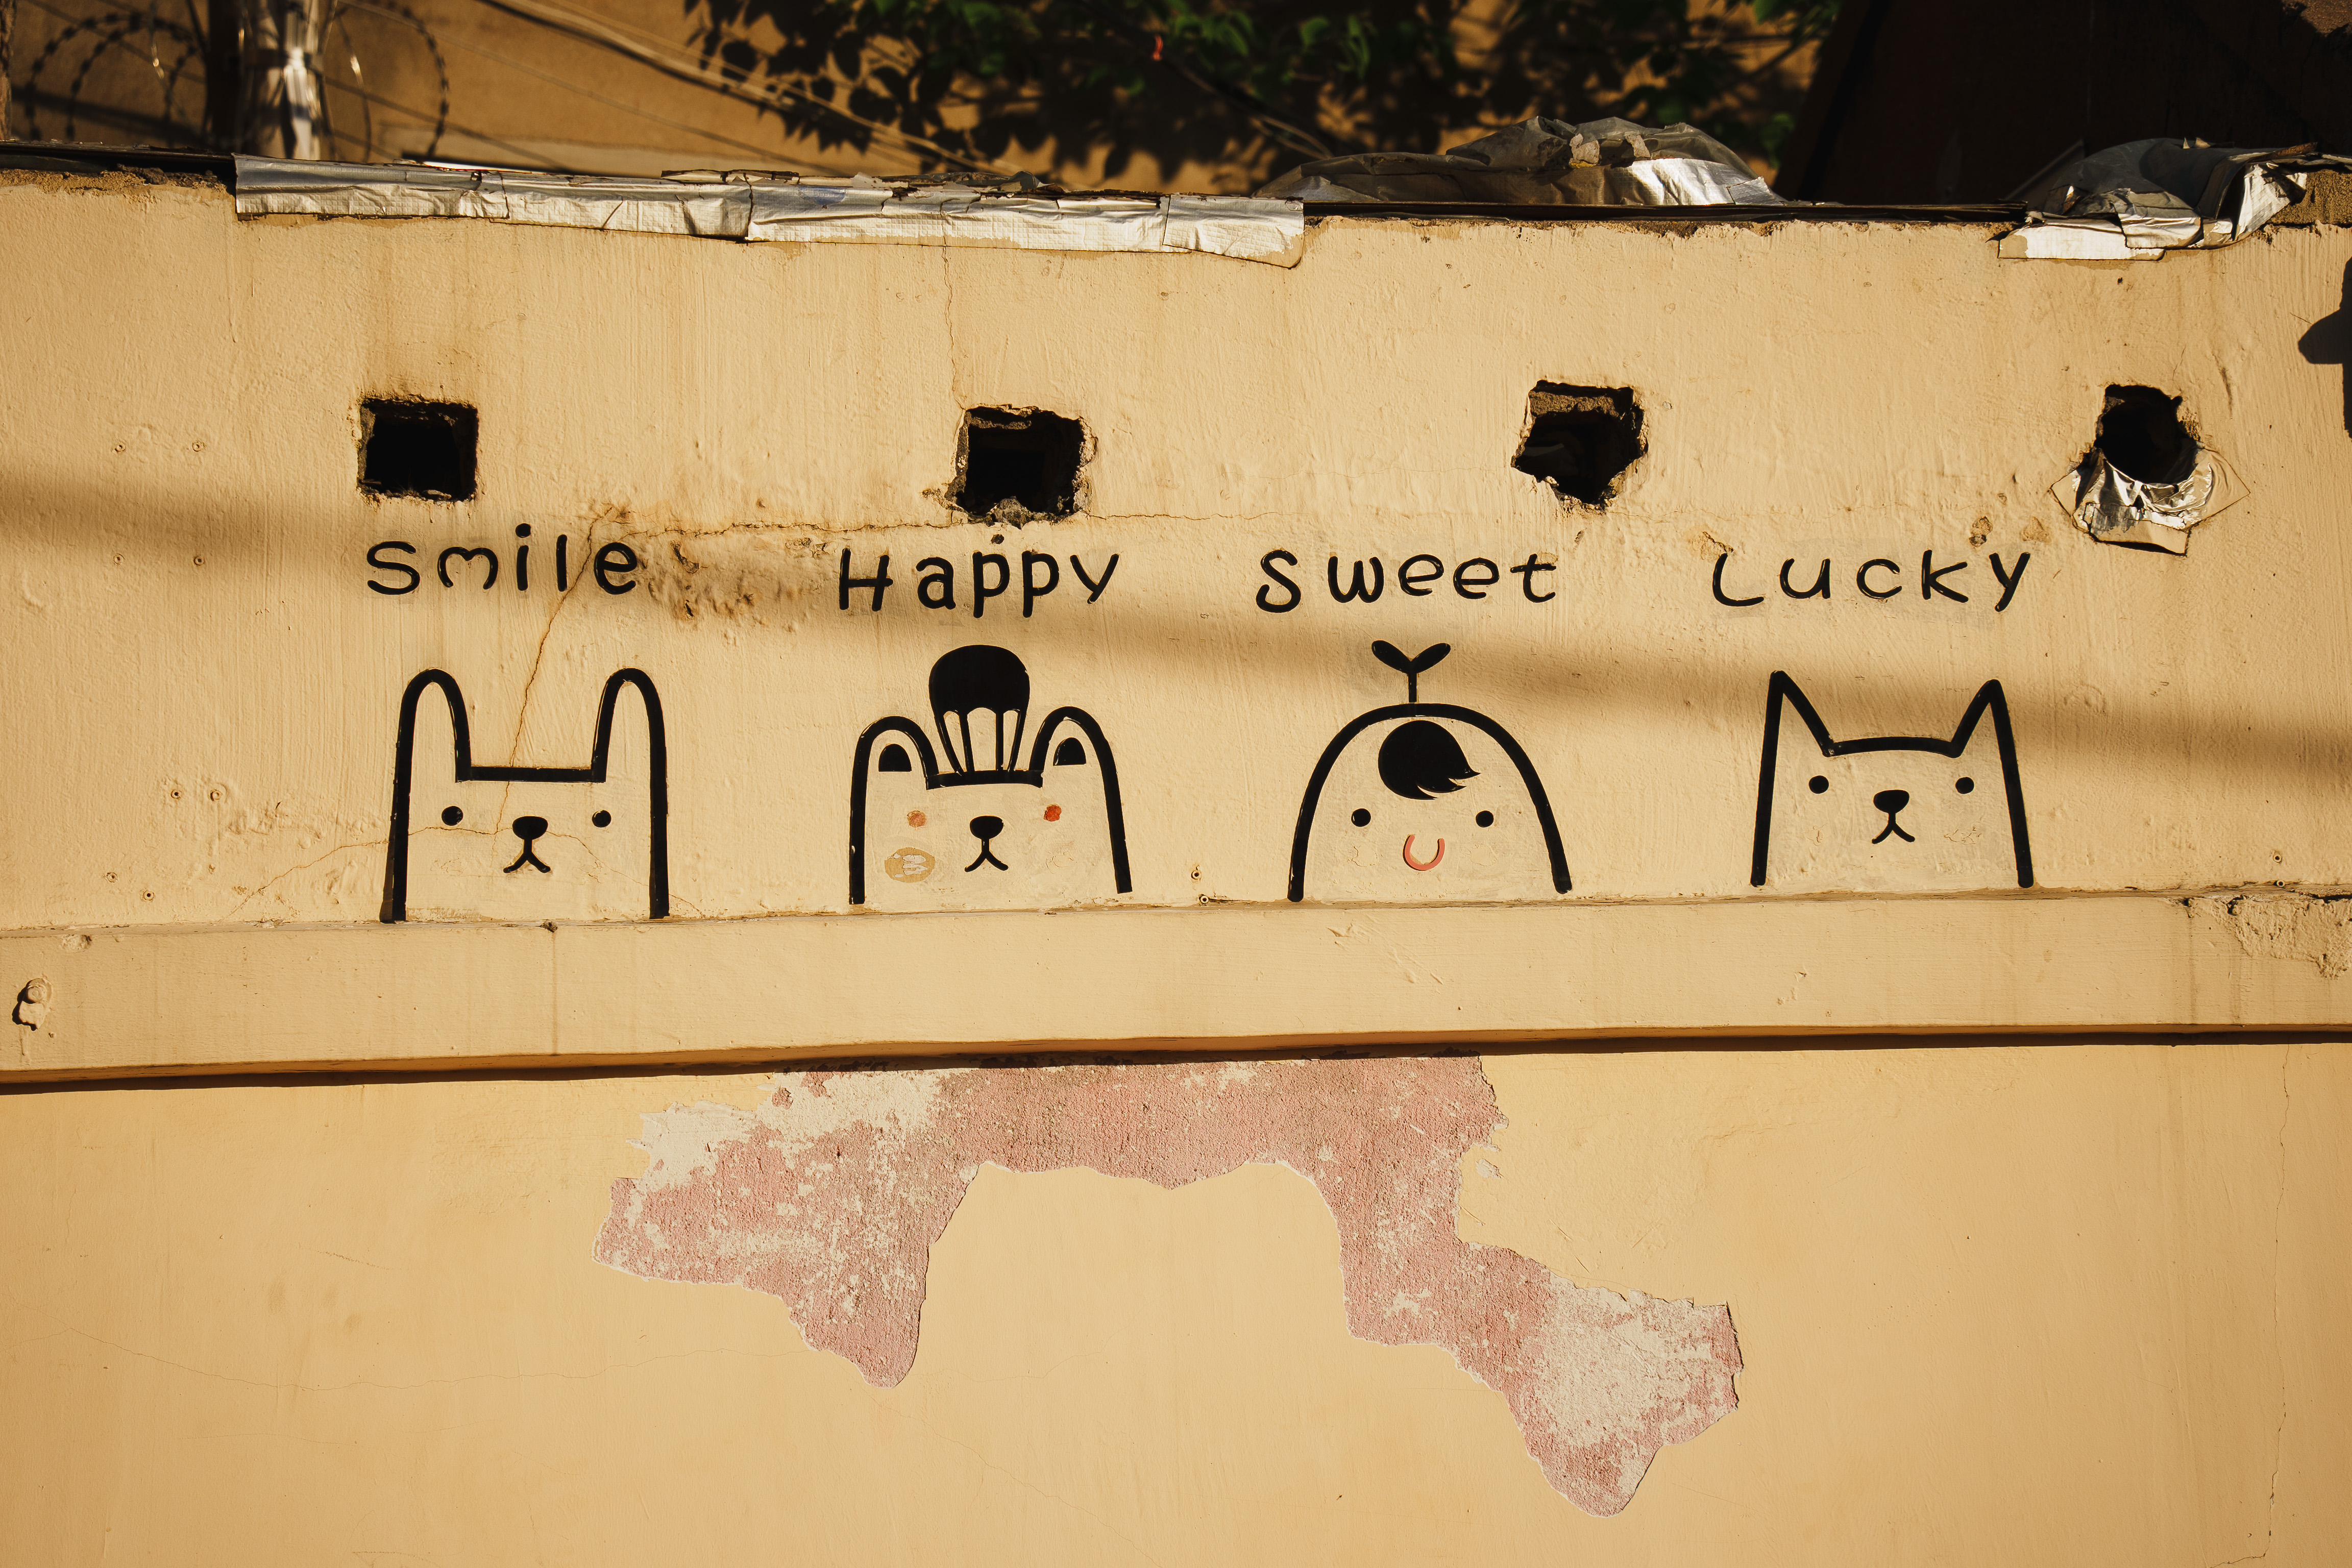 Smile Happy Sweet Lucky